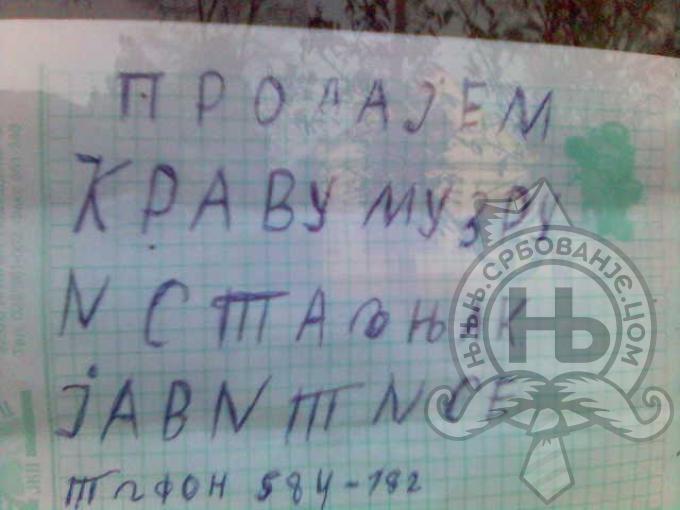 ПРОДАЈЕМ
КРАВУ МУЗРУ
И СТАЊЊК
ЈАВИТИ СЕ
ТЛФОН 584-182
њњњ.СРБОВАЊЕ.ЦОМ
Њ